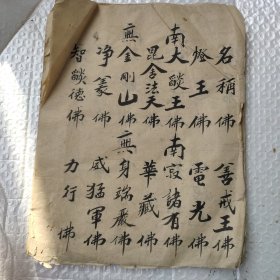 名稱佛　善戒王佛
燈王佛　電光佛
南大燄王佛　南寂諸有佛
毘舍法天佛　華藏佛
無金剛山佛　無身端嚴佛
净義佛　威猛軍佛
智燄德佛　力行佛